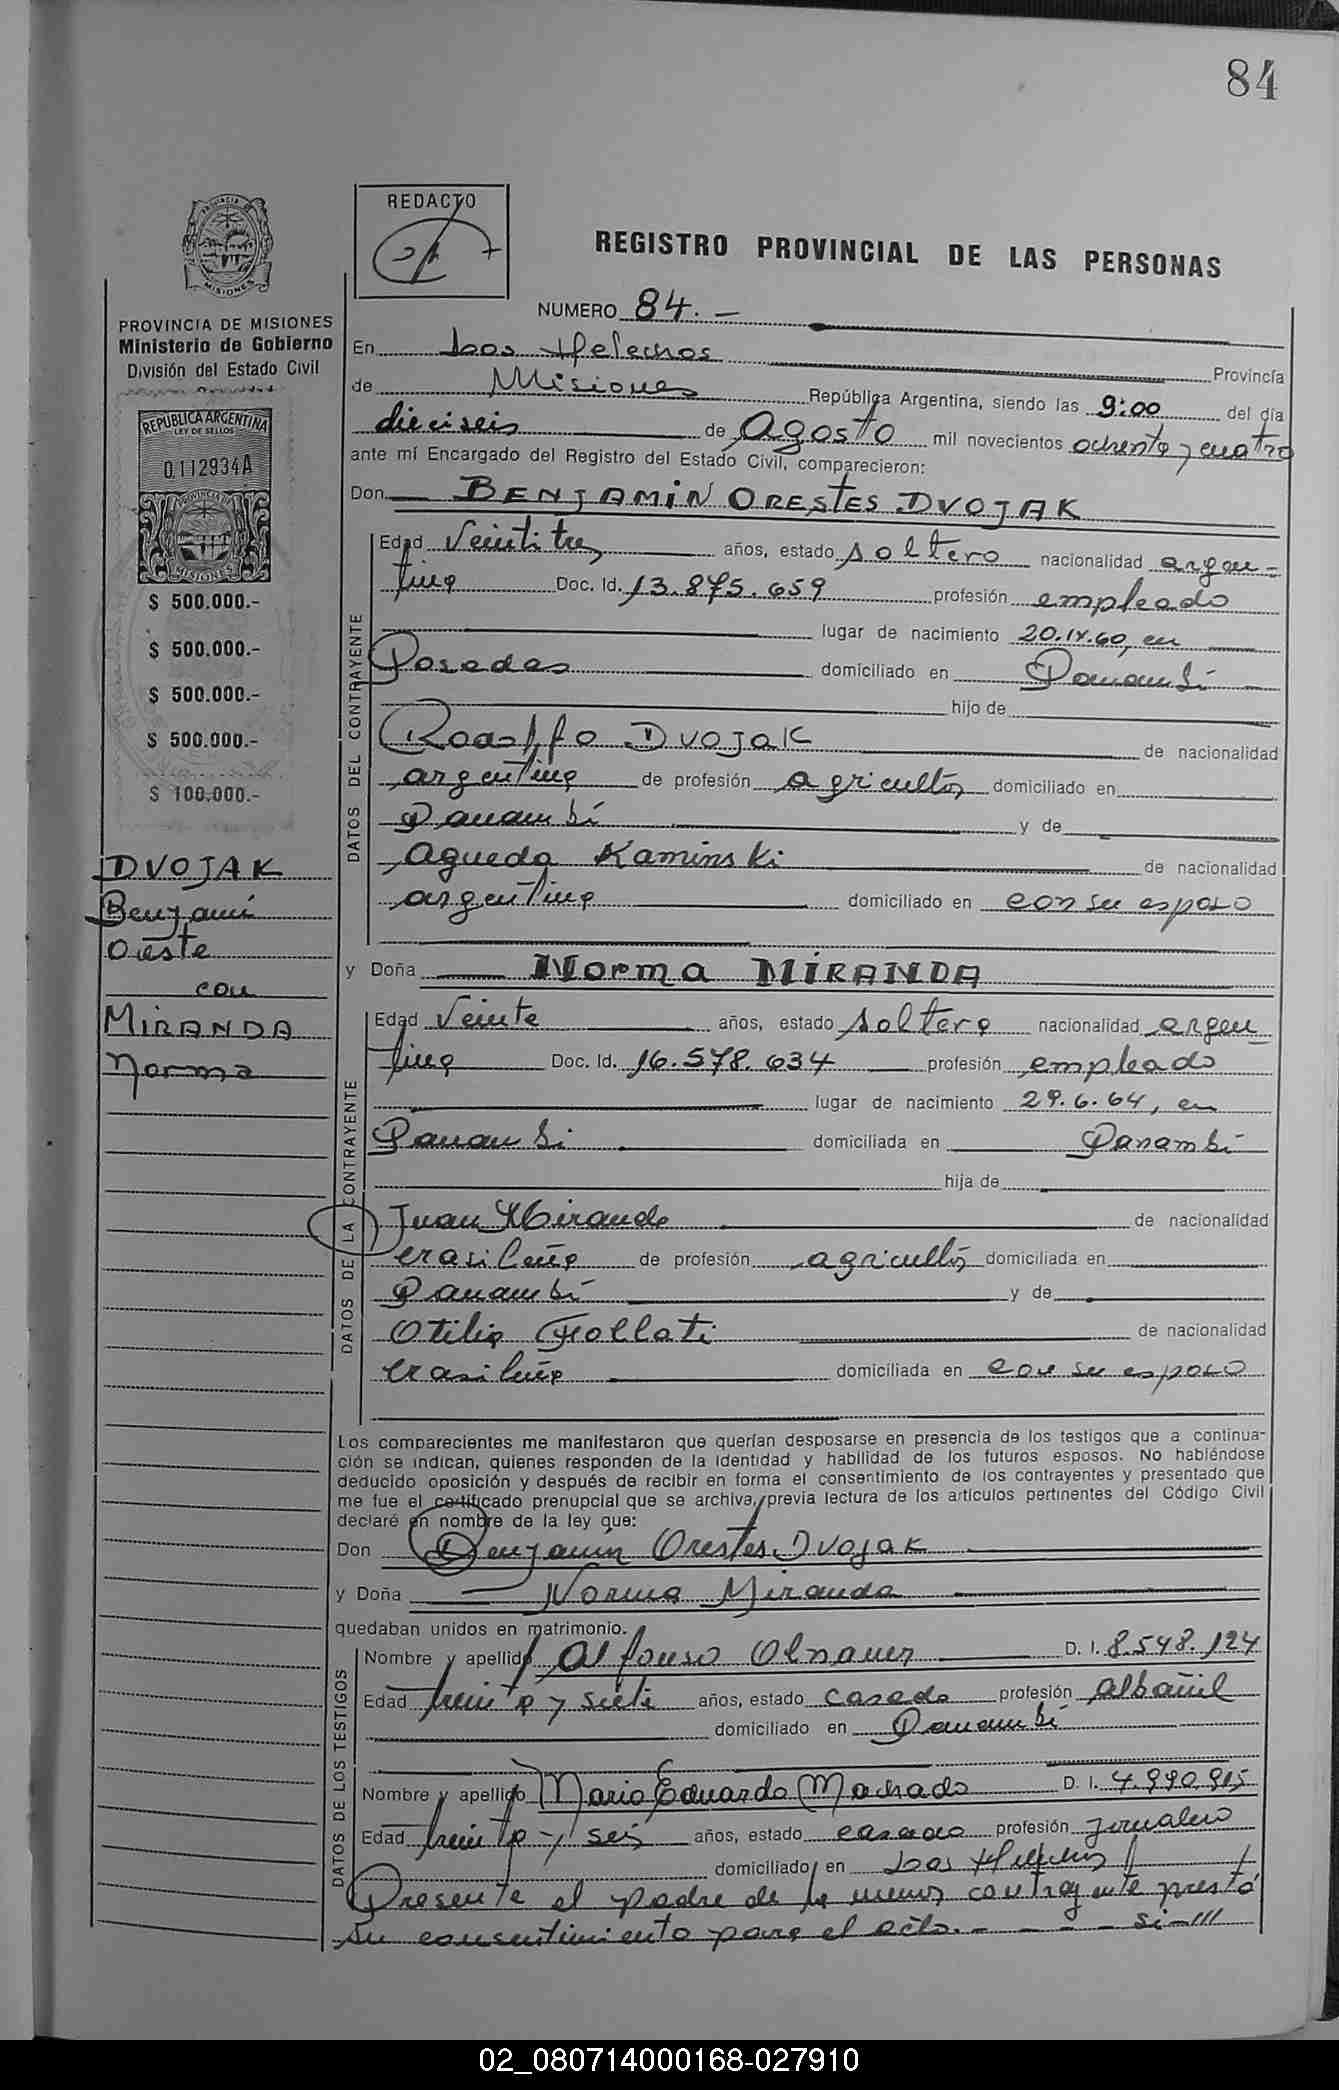 84
REDACTO
REGISTRO PROVINCIAL DE LAS PERSONAS
MISIONES
PROVINCIA DE MISIONES
Ministerio de Gobierno
División del Estado Civil
REPUBLICA ARGENTINA
LEY DE SELLOS
0112934A
PROVINCIA DE
MISIONES
$ 500.000.-
$ 500.000.-
$ 500.000.-
$ 500.000.-
$ 100.000.-
DVOJAK
Benjamí
Oreste
con
MIRANDA
Norma
NUMERO 84.-
En Los Helechos Provincia
de Misiones República Argentina, siendo las 9:00 del día
dieciseis de Agosto mil novecientos ochenta y cuatro
ante mí Encargado del Registro del Estado Civil, comparecieron:
Don BENJAMIN ORESTES DVOJAK
DATOS DEL CONTRAYENTE
Edad Veintitres años, estado soltero nacionalidad argen-
tina Doc. Id. 13.875.659 profesión empleado
lugar de nacimiento 20.IX.60, en
Posadas domiciliado en Panambí
hijo de
Rodolfo DVOJAK de nacionalidad
argentina de profesión agricultor domiciliado en
Panambí y de
Agueda Kaminski de nacionalidad
argentina domiciliado en con su esposo
y Doña Norma MIRANDA
DATOS DE LA CONTRAYENTE
Edad Veinte años, estado soltera nacionalidad argen
tina Doc. Id. 16.578.634 profesión empleada
lugar de nacimiento 29.6.64, en
Panambí domiciliada en Panambí
hija de
Juan Miranda de nacionalidad
brasileña de profesión agricultor domiciliada en
Panambí y de
Otilia de nacionalidad
brasileña domiciliada en con su esposo
Los comparecientes me manifestaron que querían desposarse en presencia de los testigos que a continua-
ción se indican, quienes responden de la identidad y habilidad de los futuros esposos. No habiéndose
deducido oposición y después de recibir en forma el consentimiento de los contrayentes y presentado que
me fue el certificado prenupcial que se archiva, previa lectura de los artículos pertinentes del Código Civil
declaré en nombre de la ley que:
Don Benjamín Orestes Dvojak
y Doña Norma Miranda
quedaban unidos en matrimonio.
DATOS DE LOS TESTIGOS
Nombre y apellido Alfonso Olnauer D. I. 8.548.124
Edad treinta y siete años, estado casado profesión albañil
domiciliado en Panambí
Nombre y apellido Mario Eduardo Machado D. I. 7.990.915
Edad treinta y seis años, estado casado profesión jornalero
domiciliado en Los Helechos
Presente el padre de la menor contrayente prestó
su consentimiento para el acto. - - - - si-///
02_080714000168-027910